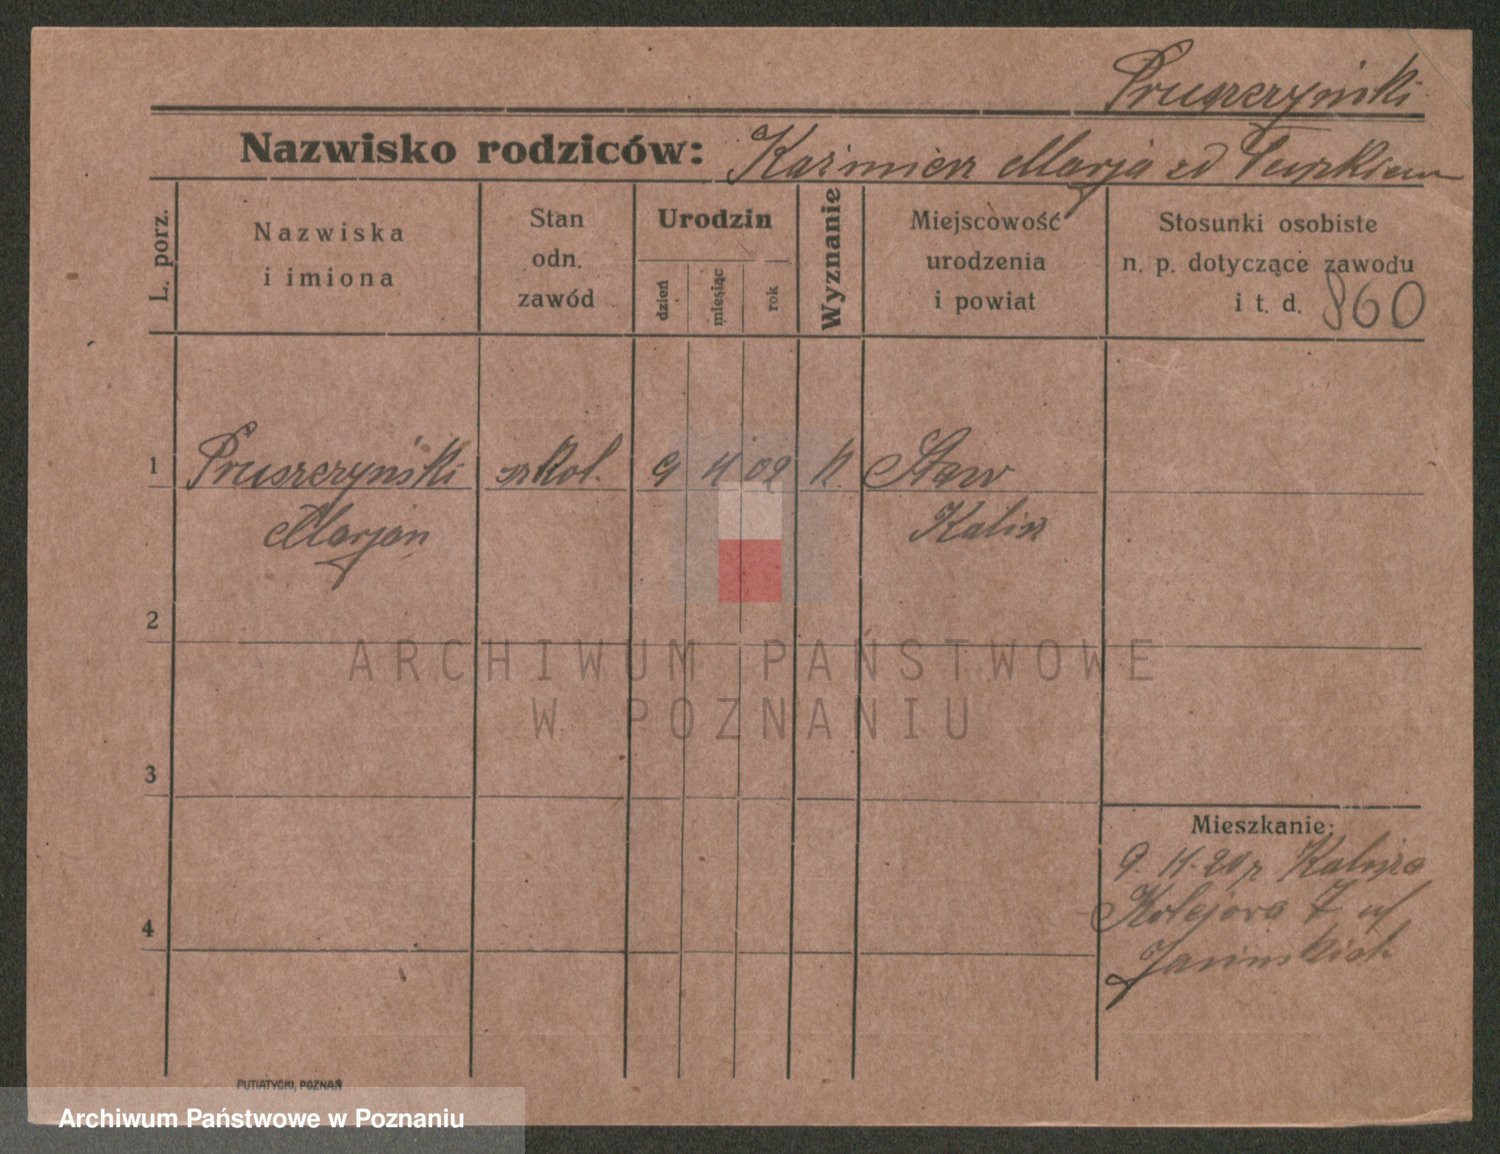 Pruszczyński
Nazwisko rodziców: Kaźmierz Marja zd
L. porz.
Nazwiska
i imiona
Stan
odn.
zawód
Urodzin
dzień
miesiąc
rok
Wyznanie
Miejscowość
urodzenia
i powiat
Stosunki osobiste
n. p. dotyczące zawodu
i t. d. 860
1 Pruszczyński szkol. 9 11 09 K. Staw
Marjan Kalisz
2
ARCHIWUM PAŃSTWOWE
W POZNANIU
3
Mieszkanie:
9. 11. 20 r Kalisza
4 Kolejova 7 u/
PUTIATYCKI, POZNAŃ
Archiwum Państwowe w Poznaniu